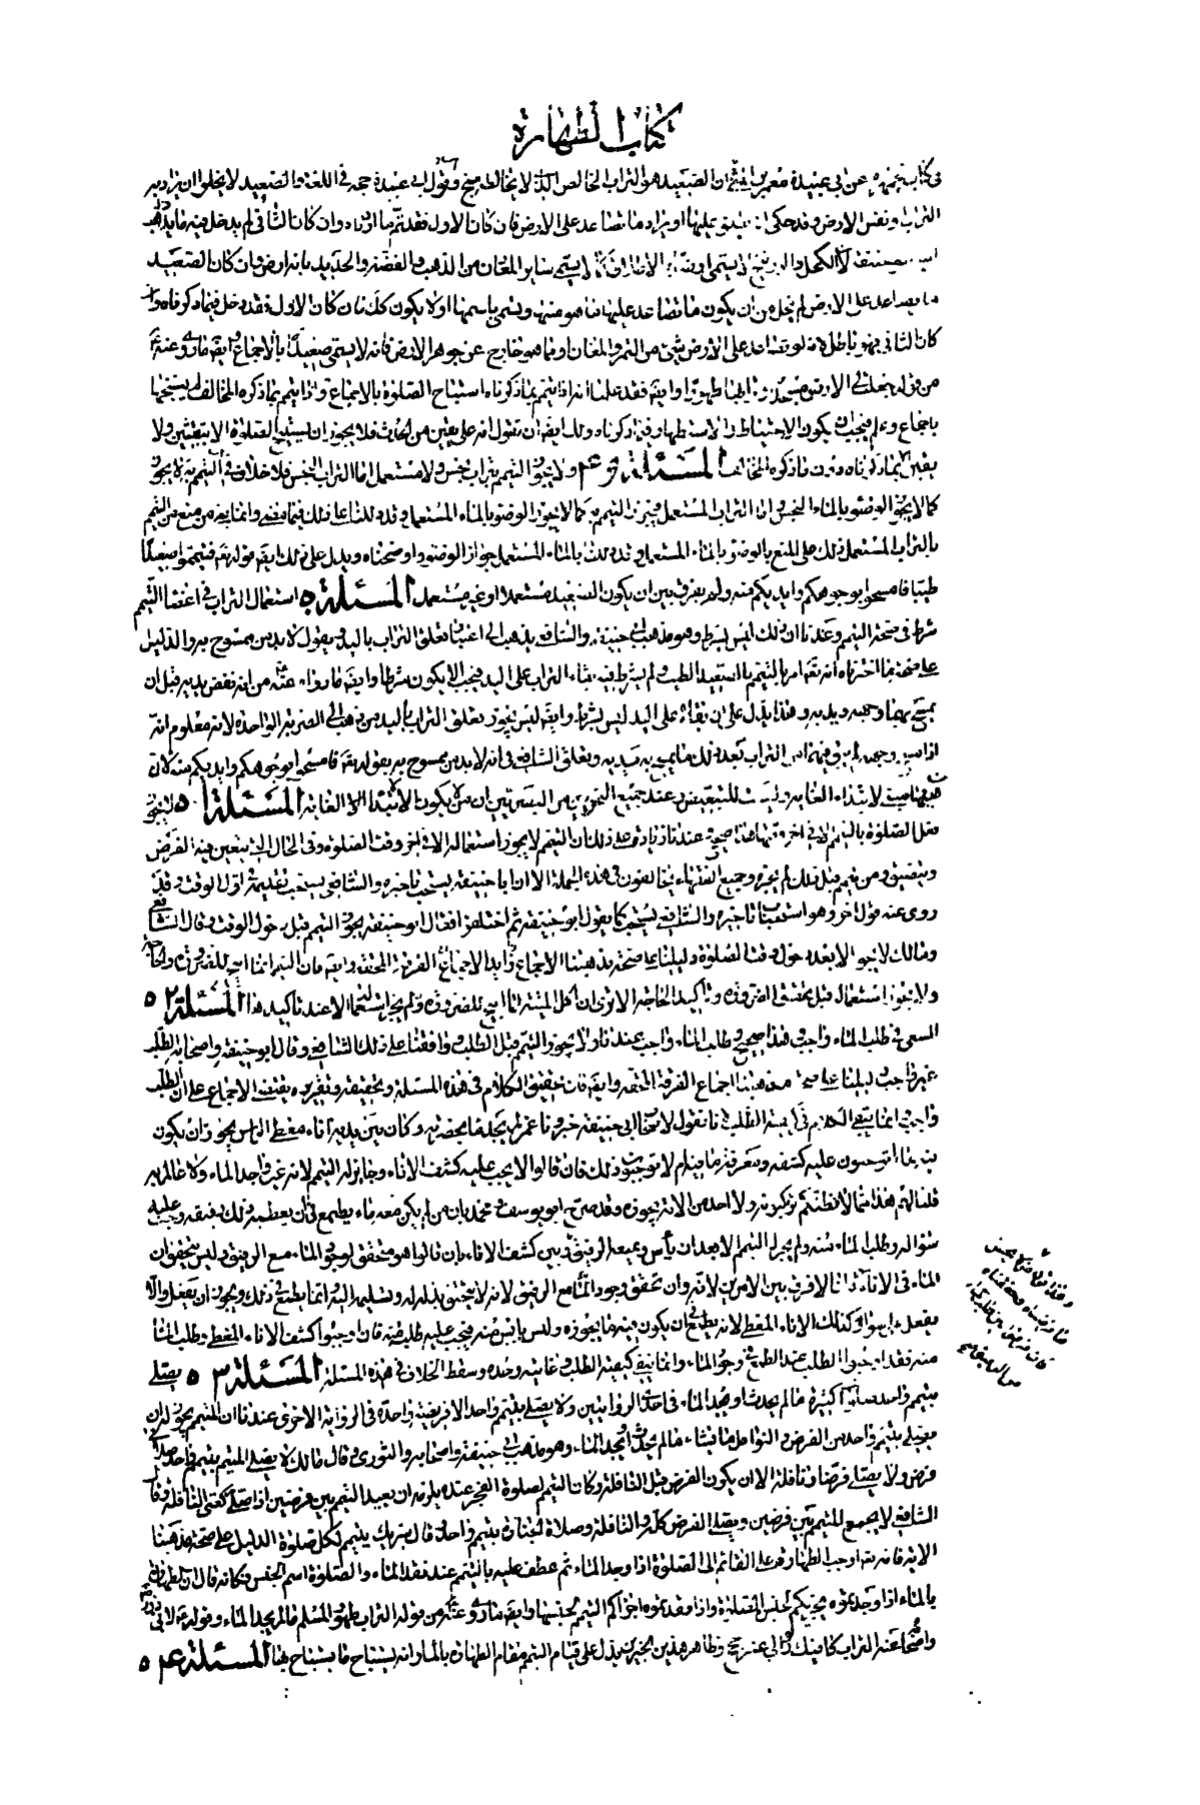 كتاب الطهارة
في كتاب عن ابي عبيدة معمر بن المثنى ان الصعيد هو التراب الخالص الذي لا يخالطه سبخ وقول ابي عبيدة حجة في اللغة والصعيد لا يخلوا ان يراد به
التراب ونفس الارض وقد حكى او يراد ما تصاعد على الارض فان كان الاول فقد تم ما اردناه وان كان الثاني لم يدخل فيه ما يذهب
لان الكحل والزرنيخ لا يسمى سائر المعادن من الذهب والفضة والحديد بانه ارض وان كان الصعيد
ما تصاعد على الارض لم يخل من ان يكون ما تصاعد عليها ما هو منها ويسمى باسمها او لا يكون كذلك فان كان الاول فقد دخل فيما ذكرناه وان
كان الثاني فهو باطل لانه لو تصاعد على الارض شيء من الثمر والمعادن او ما هو خارج عن جوهر الارض فانه لا يسمى صعيدا بالاجماع وايضا ما روي عنه
من قوله جعلت لي الارض مسجدا وترابها طهورا وايضا فقد علمنا انه اذا تيمم بما ذكرناه استباح الصلوة بالاجماع واذا تيمم بما ذكره المخالف لم يستبحها
باجماع وعلم فيجب ان يكون الاحتياط والاستظهار فيما ذكرناه ولك ايضا ان تقول انه على يقين من الحدث فلا يجوز ان يستبيح الصلوة الا بيقين ولا
يقين الا بما ذكرناه دون ما ذكره المخالف المسئلة ٤٩ ولا يجوز التيمم بتراب نجس ولا مستعمل اما التراب النجس فلا خلاف في ان التيمم به لا يجوز
كما لا يجوز الوضوء بالماء النجس واما التراب المستعمل فيجوز التيمم به كما يجوز الوضوء بالماء المستعمل وقد دللنا على ذلك فيما مضى وانما يمنع من منع من التيمم
بالتراب المستعمل ذلك على المنع بالوضوء بالماء المستعمل وقد دللنا بالماء المستعمل جواز الوضوء واوضحناه ويدل على ذلك ايضا قوله تعالى فتيمموا صعيدا
طيبا فامسحوا بوجوهكم وايديكم منه ولم يفرق بين ان يكون الصعيد مستعملا او غير مستعمل المسئلة ٥٠ استعمال التراب في اعضاء التيمم
شرط في صحة التيمم وعندنا ان ذلك ليس بشرط وهو مذهب ابي حنيفة والشافعي يذهب الى اعتبار تعلق التراب باليد ويقول لا بد من ممسوح به والدليل
على صحة ما اخترناه انه تعالى امر بالتيمم بالصعيد الطيب ولم يشترط فيه بقاء التراب على اليد فيجب الا يكون شرطا وايضا ما رواه عنه من انه نفض يديه قبل ان
يمسح بهما وجهه ويديه وهذا يدل على ان بقاءه على اليد ليس بشرط وايضا ليس يجوز تعلق التراب باليد من ذهب الى الضربة الواحدة لانه معلوم انه
اذا مسح وجهه لم يبق فيهما من التراب بعد ذلك ما يمسح به يديه وتعلق الشافعي في انه لا بد من ممسوح به بقوله تعالى فامسحوا بوجوهكم وايديكم منه لان
من هاهنا لابتداء الغاية وليست للتبعيض وعند جميع النحويين من البصريين ان من لا يكون الا لابتداء الغاية المسئلة ٥١ لا يجوز
فعل الصلوة بالتيمم الا في اخر وقتها هذا صحيح عندنا زيادة على ذلك ان التيمم لا يجوز استعماله الا في اخر وقت الصلوة وفي الحال التي يتعين فيها الفرض
ويتضيق ومن تيمم قبل ذلك لم يجزه وجميع الفقهاء يخالفون في هذه الجملة الا ان ابا حنيفة يستحب تاخيره والشافعي يستحب تقديمه في اول الوقت وقد
روى عنه قول اخر وهو استحباب تاخيره والشافعي يستحب كما يقول ابو حنيفة ثم اختلفوا فقال ابو حنيفة يجوز التيمم قبل دخول الوقت وقال الشافعي
ومالك لا يجوز الا بعد دخول وقت الصلوة دليلنا على صحة مذهبنا الاجماع وايضا الفرقة المحقة وايضا فان التيمم انما ابيح للضرورة والحاجة
ولا يجوز استعماله قبل تحقق الضرورة وتاكيد الحاجة الا ترى ان اكل الميتة انما ابيح للضرورة ولم يجز استعمالها الا عند تاكيد هذا المسئلة ٥٢
السعي في طلب الماء واجب هذا صحيح وطلب الماء واجب عندنا ولا يجوز التيمم قبل الطلب ووافقنا على ذلك الشافعي وقال ابو حنيفة واصحابه الطلب
غير واجب دليلنا على صحة مذهبنا اجماع الفرقة المحقة وايضا فان تحقيق الكلام في هذه المسئلة وتحقيقه وتقريره يقتضي الاجماع على ان الطلب
واجب وانما يبقى الكلام في كيفية الطلب فانا نقول لاصحاب ابي حنيفة خبرونا عمن لم يجد ماء بحضرته وكان بين يديه اناء مغطى الراس يجوز ان يكون
فيه ماء اتوجبون عليه كشفه ومعرفة ما فيه ام لا توجبون ذلك فان قالوا لا يجب عليه كشف الاناء وجاز له التيمم لانه غير واجد للماء ولا عالم به
قلنا لهم هذا مما لا نظنكم تركبونه ولا احد من الامة يجوزه وقد صرح ابو يوسف ومحمد بان من لم يكن معه ماء يطمع في ان يعطيه ذلك رفيقه وجب عليه
سؤاله وطلب الماء منه ولم يجز له التيمم الا بعد ان يأس ويمنعه الرفيق وبين كشف الاناء بان قالوا هو متحقق لوجود الماء مع الرفيق وليس يتحقق ان
الماء في الاناء قلنا لا فرق بين الامرين لانه وان تحقق وجود الماء مع الرفيق لانه لا يتحقق بذله له وتسليمه اليه وانما يطمع في ذلك ويجوز ان يفعل والا
يفعل اذا سؤاله وكذلك الاناء المغطى لانه يطمع في ان يكون فيه ماء يجوزه وليس يأيس منه فيجب عليه طلبه منه فان اوجبوا كشف الاناء المغطى وطلب الماء
منه فقد اوجبوا الطلب عند الطمع في وجود الماء وانما بقي كيفية الطلب وغايته وحده وسقط الخلاف في هذه المسئلة المسئلة ٥٣ يصلي
بتيمم واحد صلوات كثيرة ما لم يحدث او يجد الماء في احدى الروايتين ولا يصلي بتيمم واحد الا فريضة واحدة في الرواية الاخرى عندنا ان المتيمم يجوز له ان
يصلي بتيمم واحد من الفرض والنوافل ما يشاء ما لم يحدث او يجد الماء وهو مذهب ابي حنيفة واصحابه والثوري وقال مالك لا يصلي المتيمم بتيمم واحد صلاتي
فرض ولا يصلي فرضا ونافلة الا ان يكون الفرض قبل النافلة وكان التيمم لصلوة الفجر عنده يلزمه ان يعيد التيمم بين فرضين اذا صلى ركعتي النافلة وقال
الشافعي لا يجمع المتيمم بين فرضين ويصلي الفرض كله والنافلة وصلاة الجنازة بتيمم واحد وقال شريك يتيمم لكل صلوة الدليل على صحة مذهبنا
الاية فانه تعالى اوجب الطهارة على القائم الى الصلوة اذا وجد الماء ثم عطف عليه بالتيمم عند فقد الماء والصلوة اسم الجنس فكانه قال ان الطهارة
بالماء اذا وجدتموه يجزيكم لجنس الصلوة واذا فقدتموه اجزاكم التيمم لجنسها وايضا ما روي عنه من قوله التراب طهور المسلم ما لم يجد الماء وقوله لابي ذر
وانما عنه التراب كافيك ولو الى عشر حجج وظاهر هذين الخبرين يدل على قيام التيمم مقام الطهارة بالماء وانه يستباح ما يستباح بها المسئلة ٥٤